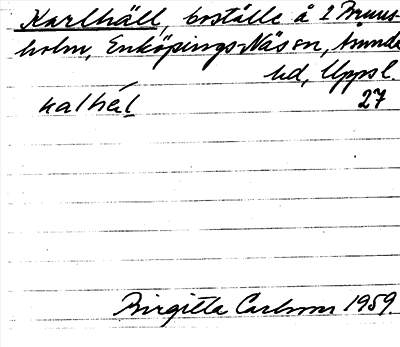 Karlhäll, boställe å 2 Bruus-
holm, Enköpings-Näs sn, Trunde
hd, Uppsl.
kalhäl 27
Birgitta Carlsson 1959.